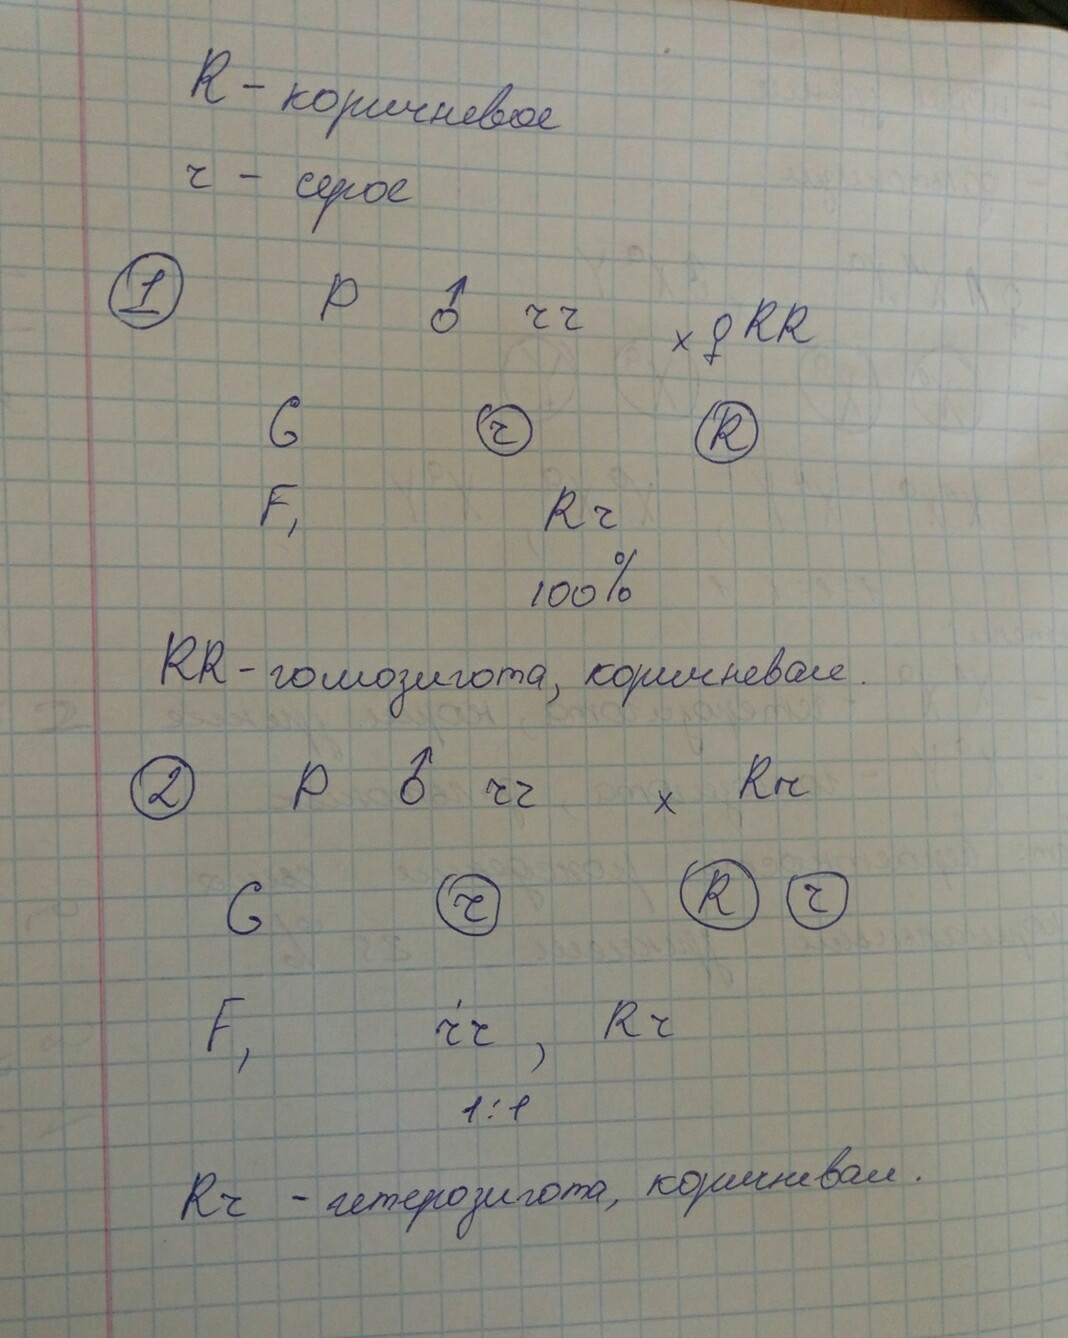 R - коричневое
r - серое
1 P ♂ rr x ♀ RR
G r R
F1 Rr
100%
RR - гомозигота, коричневая.
2 P ♂ rr x Rr
G r R r
F1 rr , Rr
1:1
Rr - гетерозигота, коричневая.